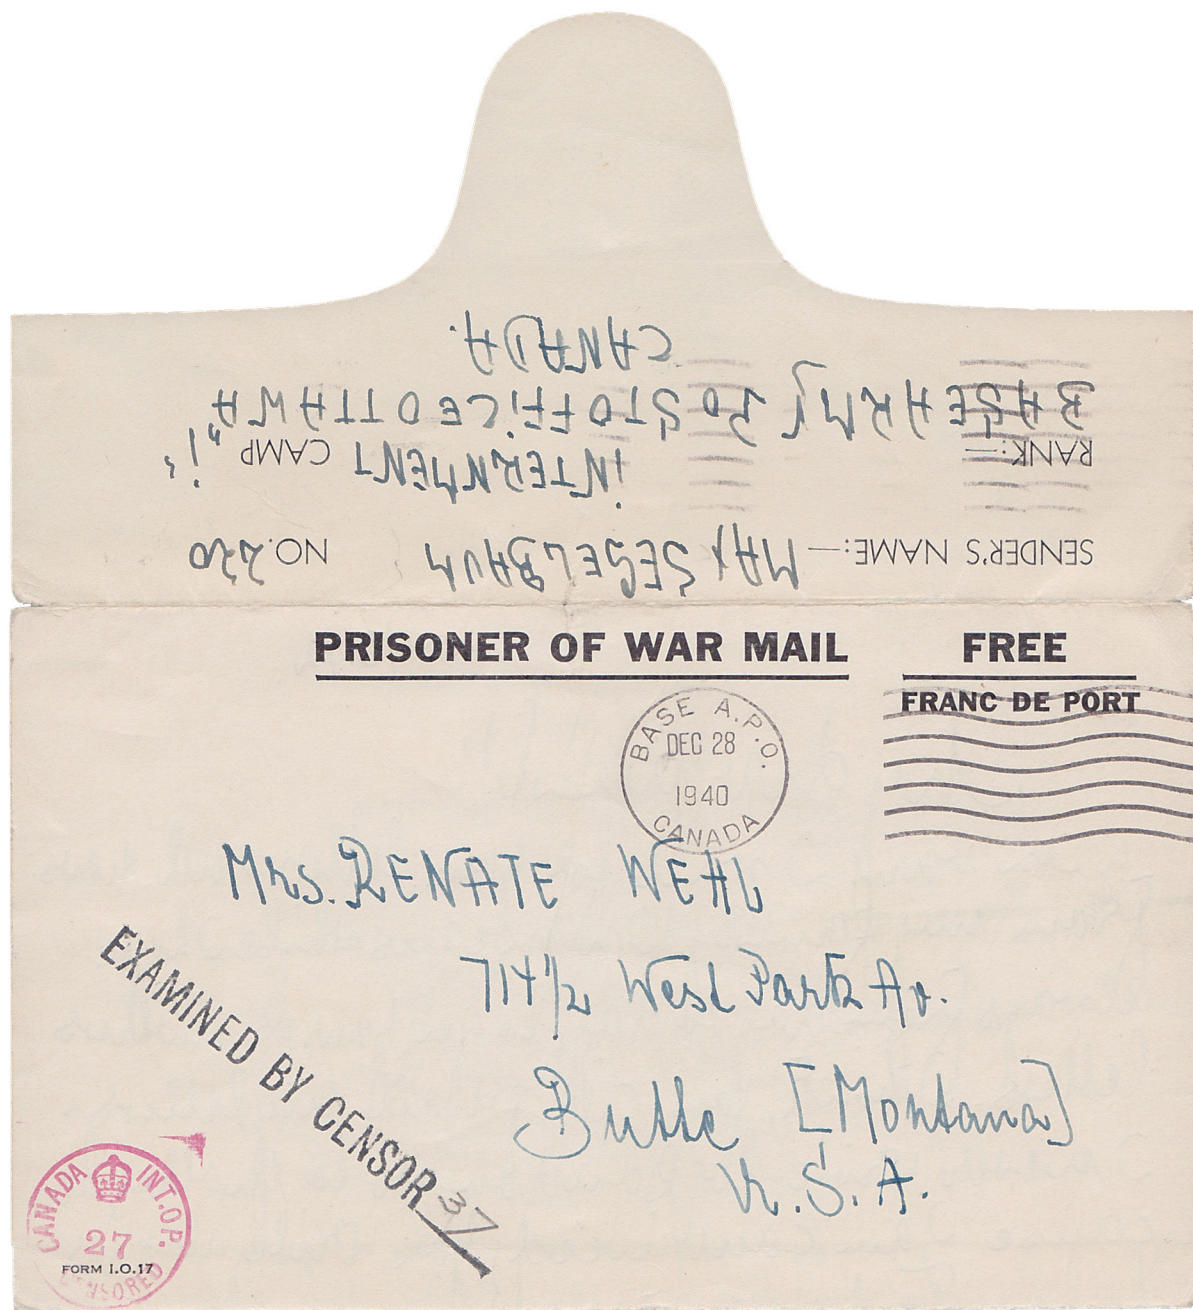 SENDER'S NAME:— MAX SEGELBAUM NO. 220
RANK:— INTERNMENT CAMP „i“
BASE ARMY POSTOFFICE OTTAWA
CANADA.
PRISONER OF WAR MAIL FREE
FRANC DE PORT
BASE A.P.O.
DEC 28
1940
CANADA
Mrs. RENATE WEHL
714½ West Park Av.
Butte [Montana]
U.S.A.
EXAMINED BY CENSOR 37
CANADA INT. OP.
27
FORM I.O.17
CENSORED